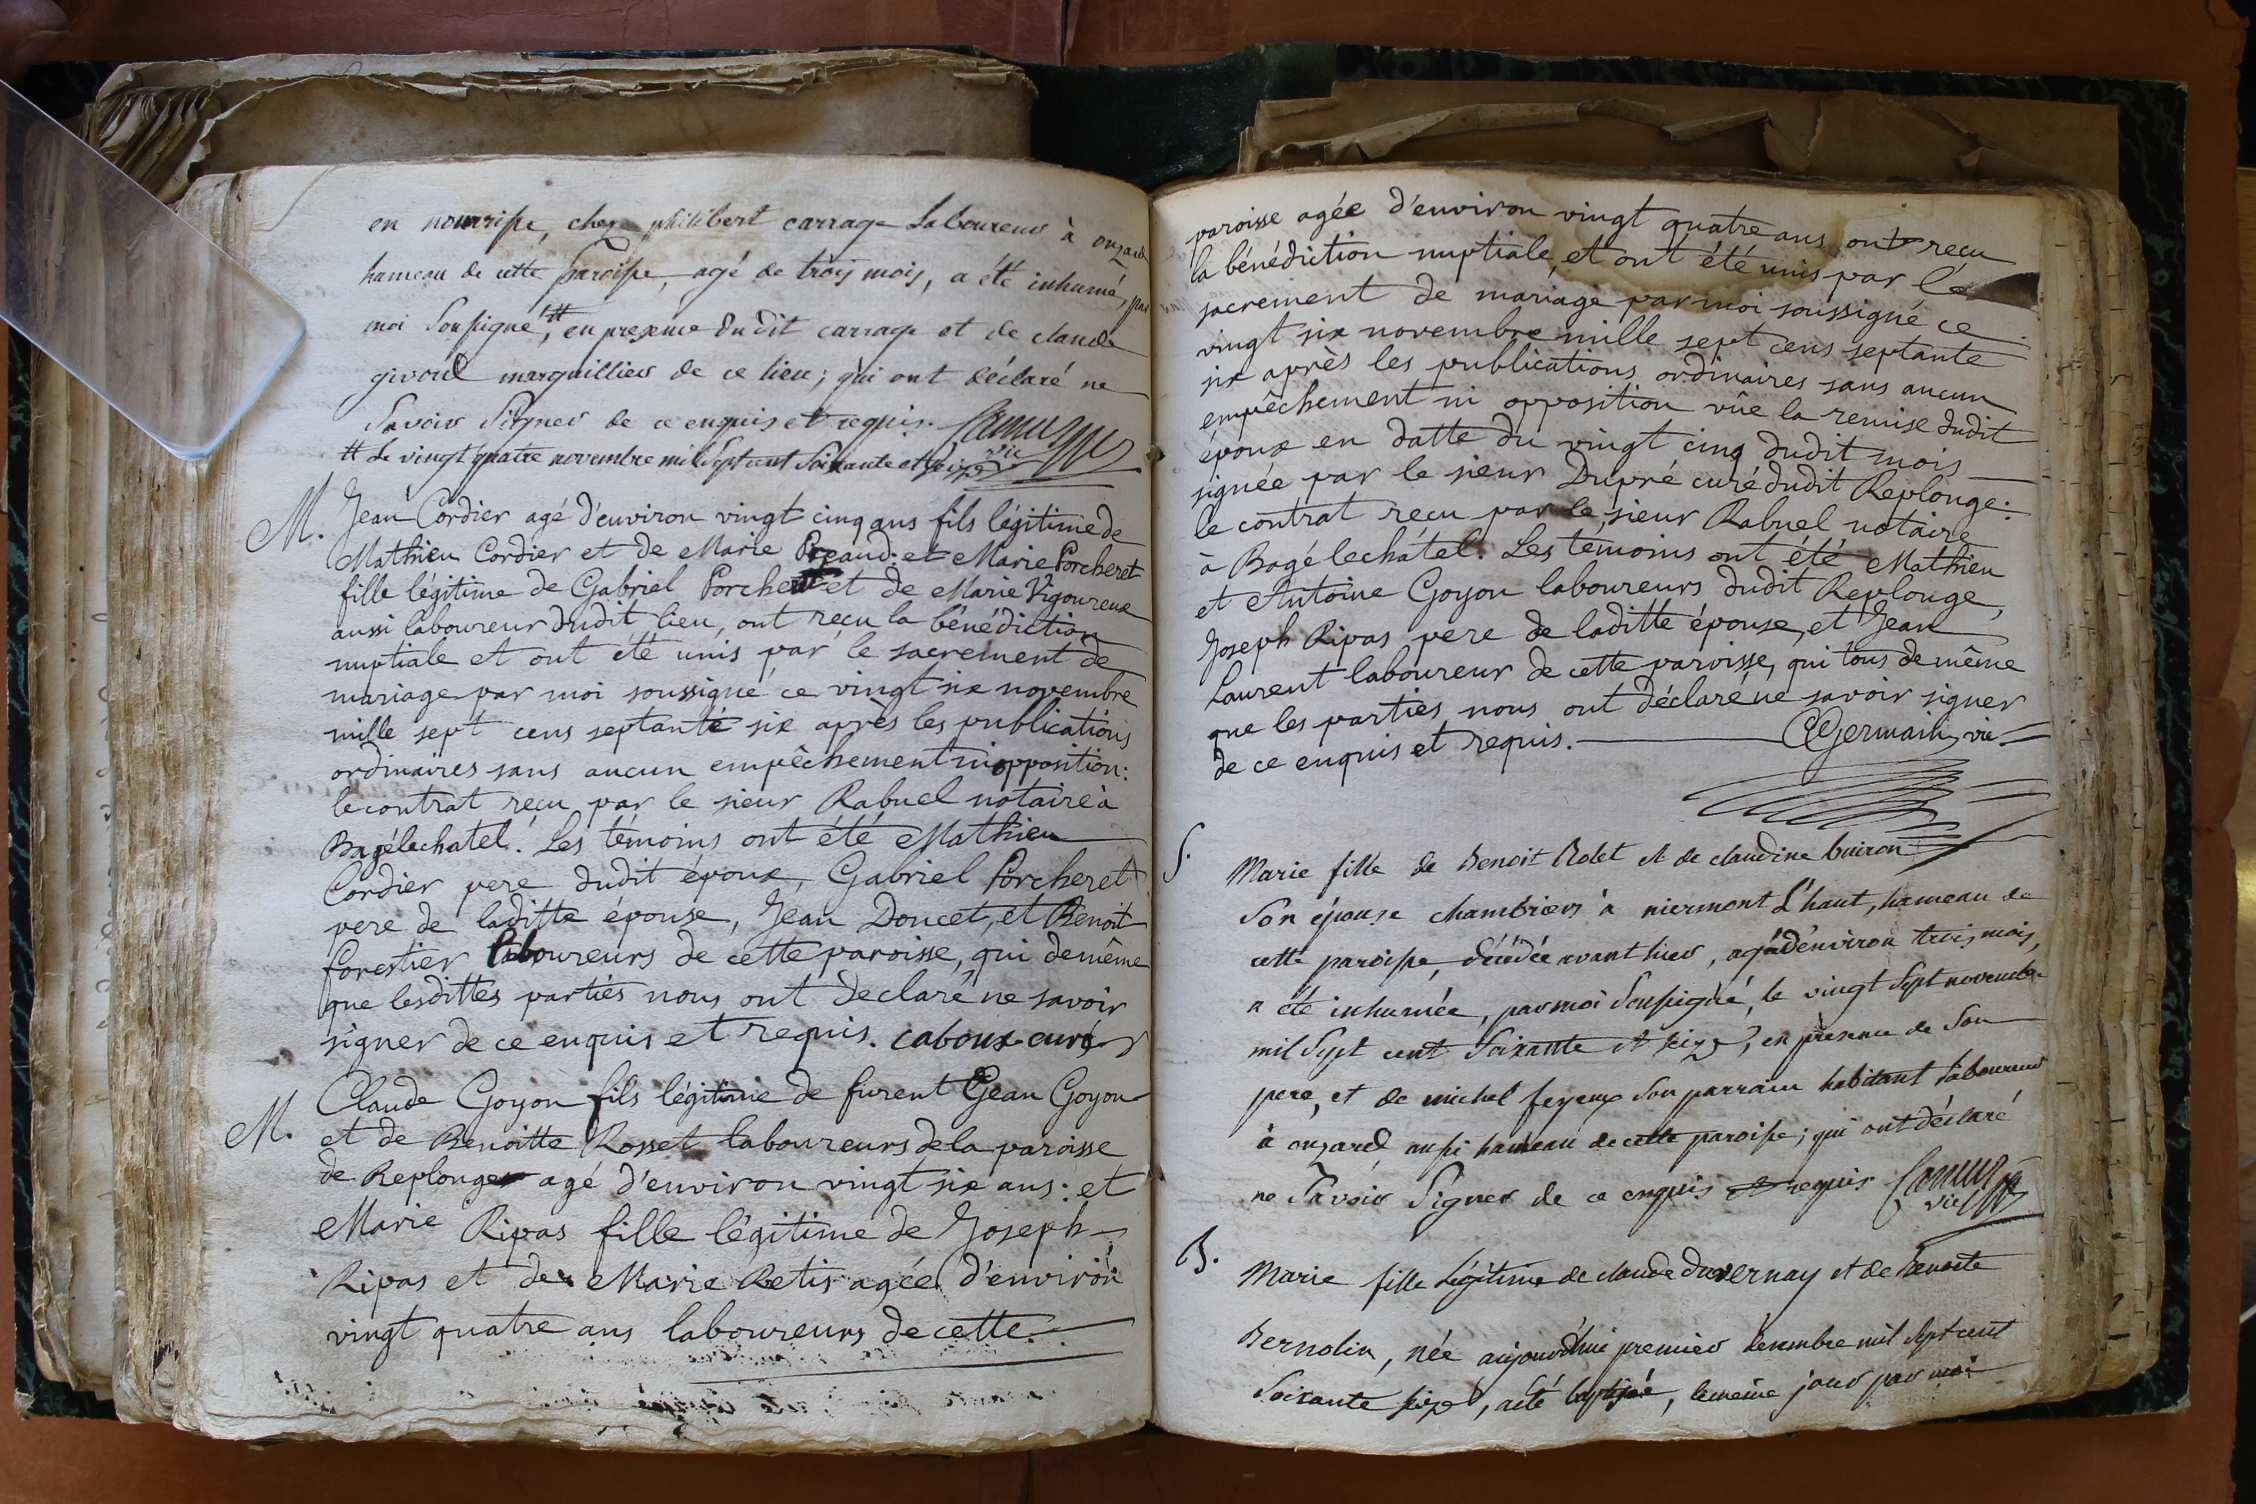 en nourrisse, chez philibert carrage Laboureur à onzard
hameau de cette Paroisse, agé de trois mois, a été inhumé, par
moi Soussigné, # en presence dudit carrage et de claude
givord marguillier de ce lieu; qui ont déclaré ne
Savoir Signer de ce enquis et requis. Camus vic
# Le vingt quatre novembre mil Sept cent Soixante et seize
M. Jean Cordier agé d'environ vingt cinq ans fils légitime de
Mathieu Cordier et de Marie Preaud: et Marie Porcheret
fille légitime de Gabriel Porcheret et de Marie Vigoureux
aussi laboureur dudit lieu, ont reçu la bénédiction
nuptiale et ont été unis par le sacrement de
mariage par moi soussigné ce vingt six novembre
mille sept cens septante six après les publications
ordinaires sans aucun empêchement ni opposition:
le contrat reçu par le sieur Rabuel notaire à
Bagélechatel. Les témoins ont été Mathieu
Cordier pere dudit époux, Gabriel Porcheret
pere de laditte épouse, Jean Doucet, et Benoit
forestier laboureurs de cette paroisse, qui de même
que lesdittes parties nous ont declaré ne savoir
signer de ce enquis et requis. caboux curé
M. Claude Goyon fils légitime de furent Jean Goyon
et de Benoitte Rosset laboureurs de la paroisse
de Replonge agé d'environ vingt six ans: et
Marie Ripas fille légitime de Joseph
Ripas et de Marie Retis agée d'environ
vingt quatre ans laboureurs de cette.
paroisse agée d'environ vingt quatre ans ont reçu
la bénédiction nuptiale, et ont été unis par le
sacrement de mariage par moi soussigné ce
vingt six novembre mille sept cens septante
six après les publications ordinaires sans aucun
empêchement ni opposition vûe la remise dudit
époux en datte du vingt cinq dudit mois
signée par le sieur Dupré curé dudit Replonge:
le contrat reçu par le sieur Rabuel notaire
à Bagé lechâtel. Les témoins ont été Mathieu
et Antoine Goyon laboureurs dudit Replonge,
Joseph Ripas pere de laditte épouse, et Jean
Laurent laboureur de cette paroisse, qui tous de même
que les parties nous ont déclaré ne savoir signer
de ce enquis et requis. Germain vic
S. Marie fille de Benoit Rolet et de claudine buiron
Son épouse chambriers à niermont L'haut, hameau de
cette paroisse, décédée avant hier, agée d'environ trois mois,
a été inhumée, par moi Soussigné, le vingt Sept novembre
mil Sept cent Soixante et seize, en presence de Son
pere, et de michel feyeux Son parrain habitant Laboureur
à onzard aussi hameau de cette paroisse; qui ont déclaré
ne Savoir Signer de ce enquis et requis Camus vic
B. Marie fille Légitime de claude duvernay et de benoite
Bernolin, née aujourdhui premier decembre mil Sept cent
Soixante seize, a été baptisée, le même jour par moi